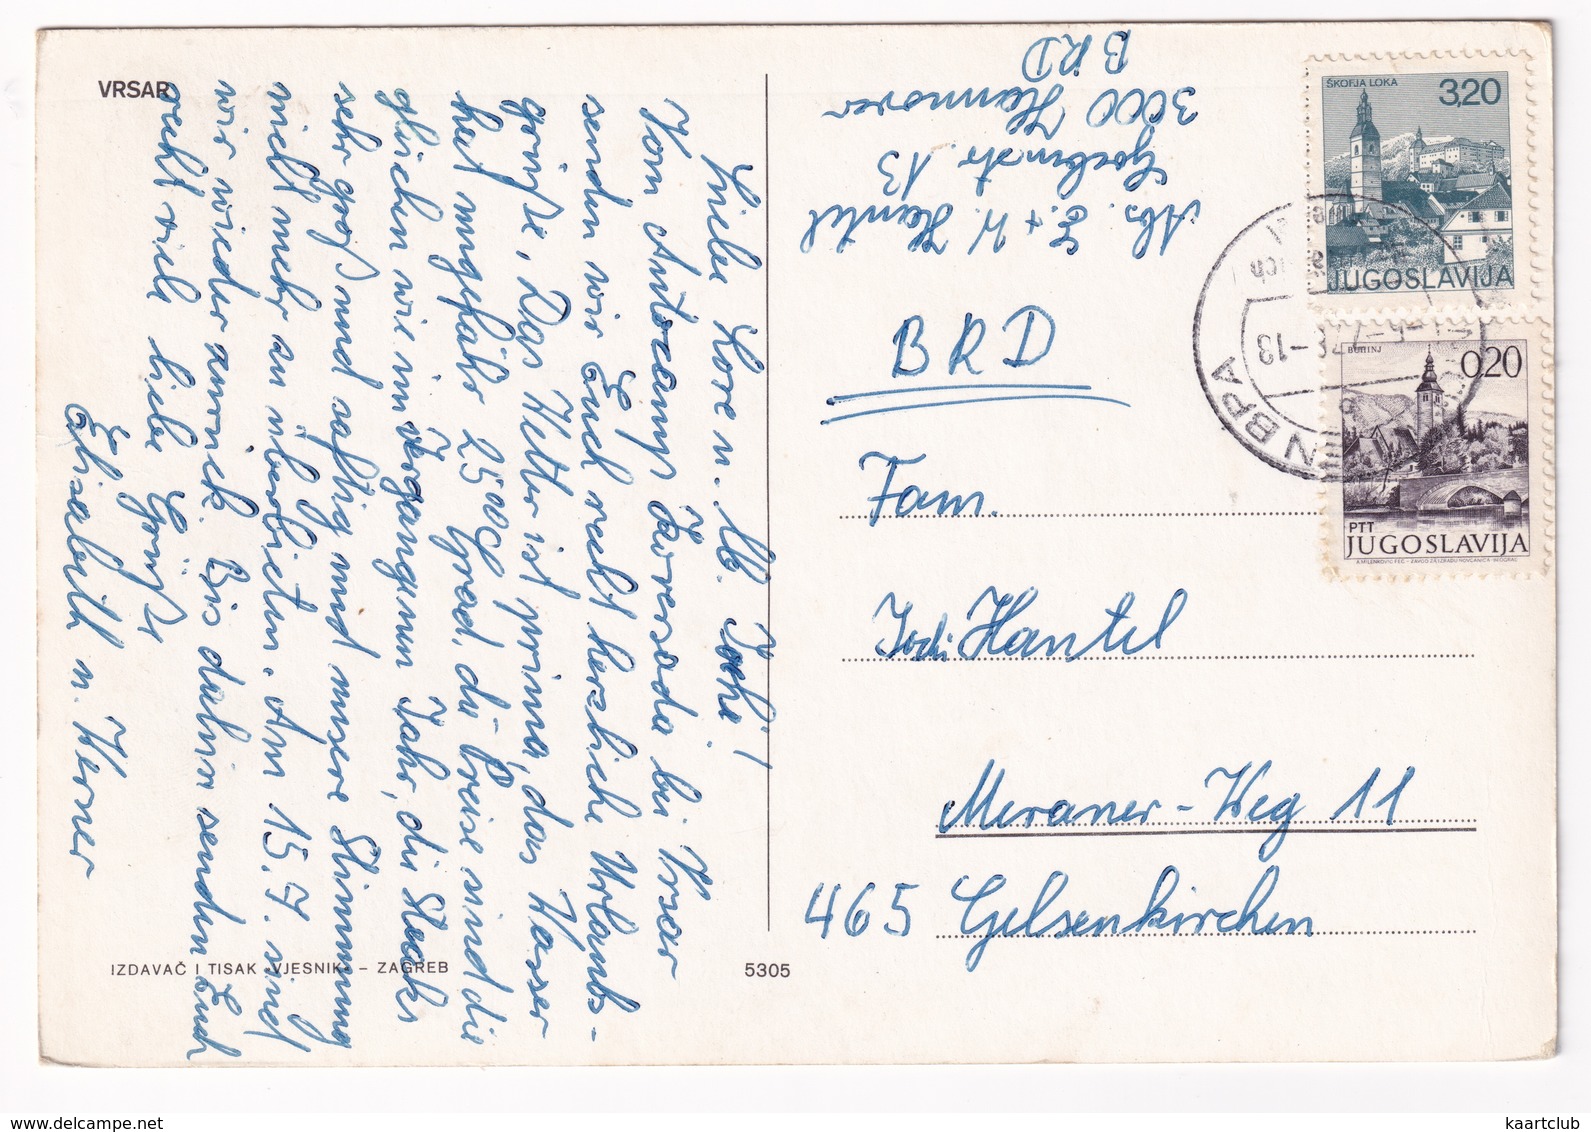 VRSAR
Liebe Lore u. Jochi!
Vom Autocamp Koversada bei Vrsar
senden wir Euch recht herzliche Urlaubs-
grüße. Das Wetter ist prima, das Wasser
hat ungefähr 25°C Grad, die Preise sind die
gleichen wie im vergangenen Jahr, die Steaks
sehr groß und saftig und unsere Stimmung
nicht mehr zu überbieten. Am 15.7. sind
wir wieder zurück. Bis dahin senden Euch
recht viele liebe Grüße
Elisabeth u. Werner
IZDAVAČ I TISAK «VJESNIK» – ZAGREB
5305
Abs. E. + W. Hantel
13
3000 Hannover
BRD
BRD
Fam.
Jochi Hantel
Meraner-Weg 11
465 Gelsenkirchen
ŠKOFJA LOKA
3,20
JUGOSLAVIJA
BOHINJ
0,20
PTT
JUGOSLAVIJA
A.MILENKOVIĆ FEC. – ZAVOD ZA IZRADU NOVČANICA – BEOGRAD
kaartclub